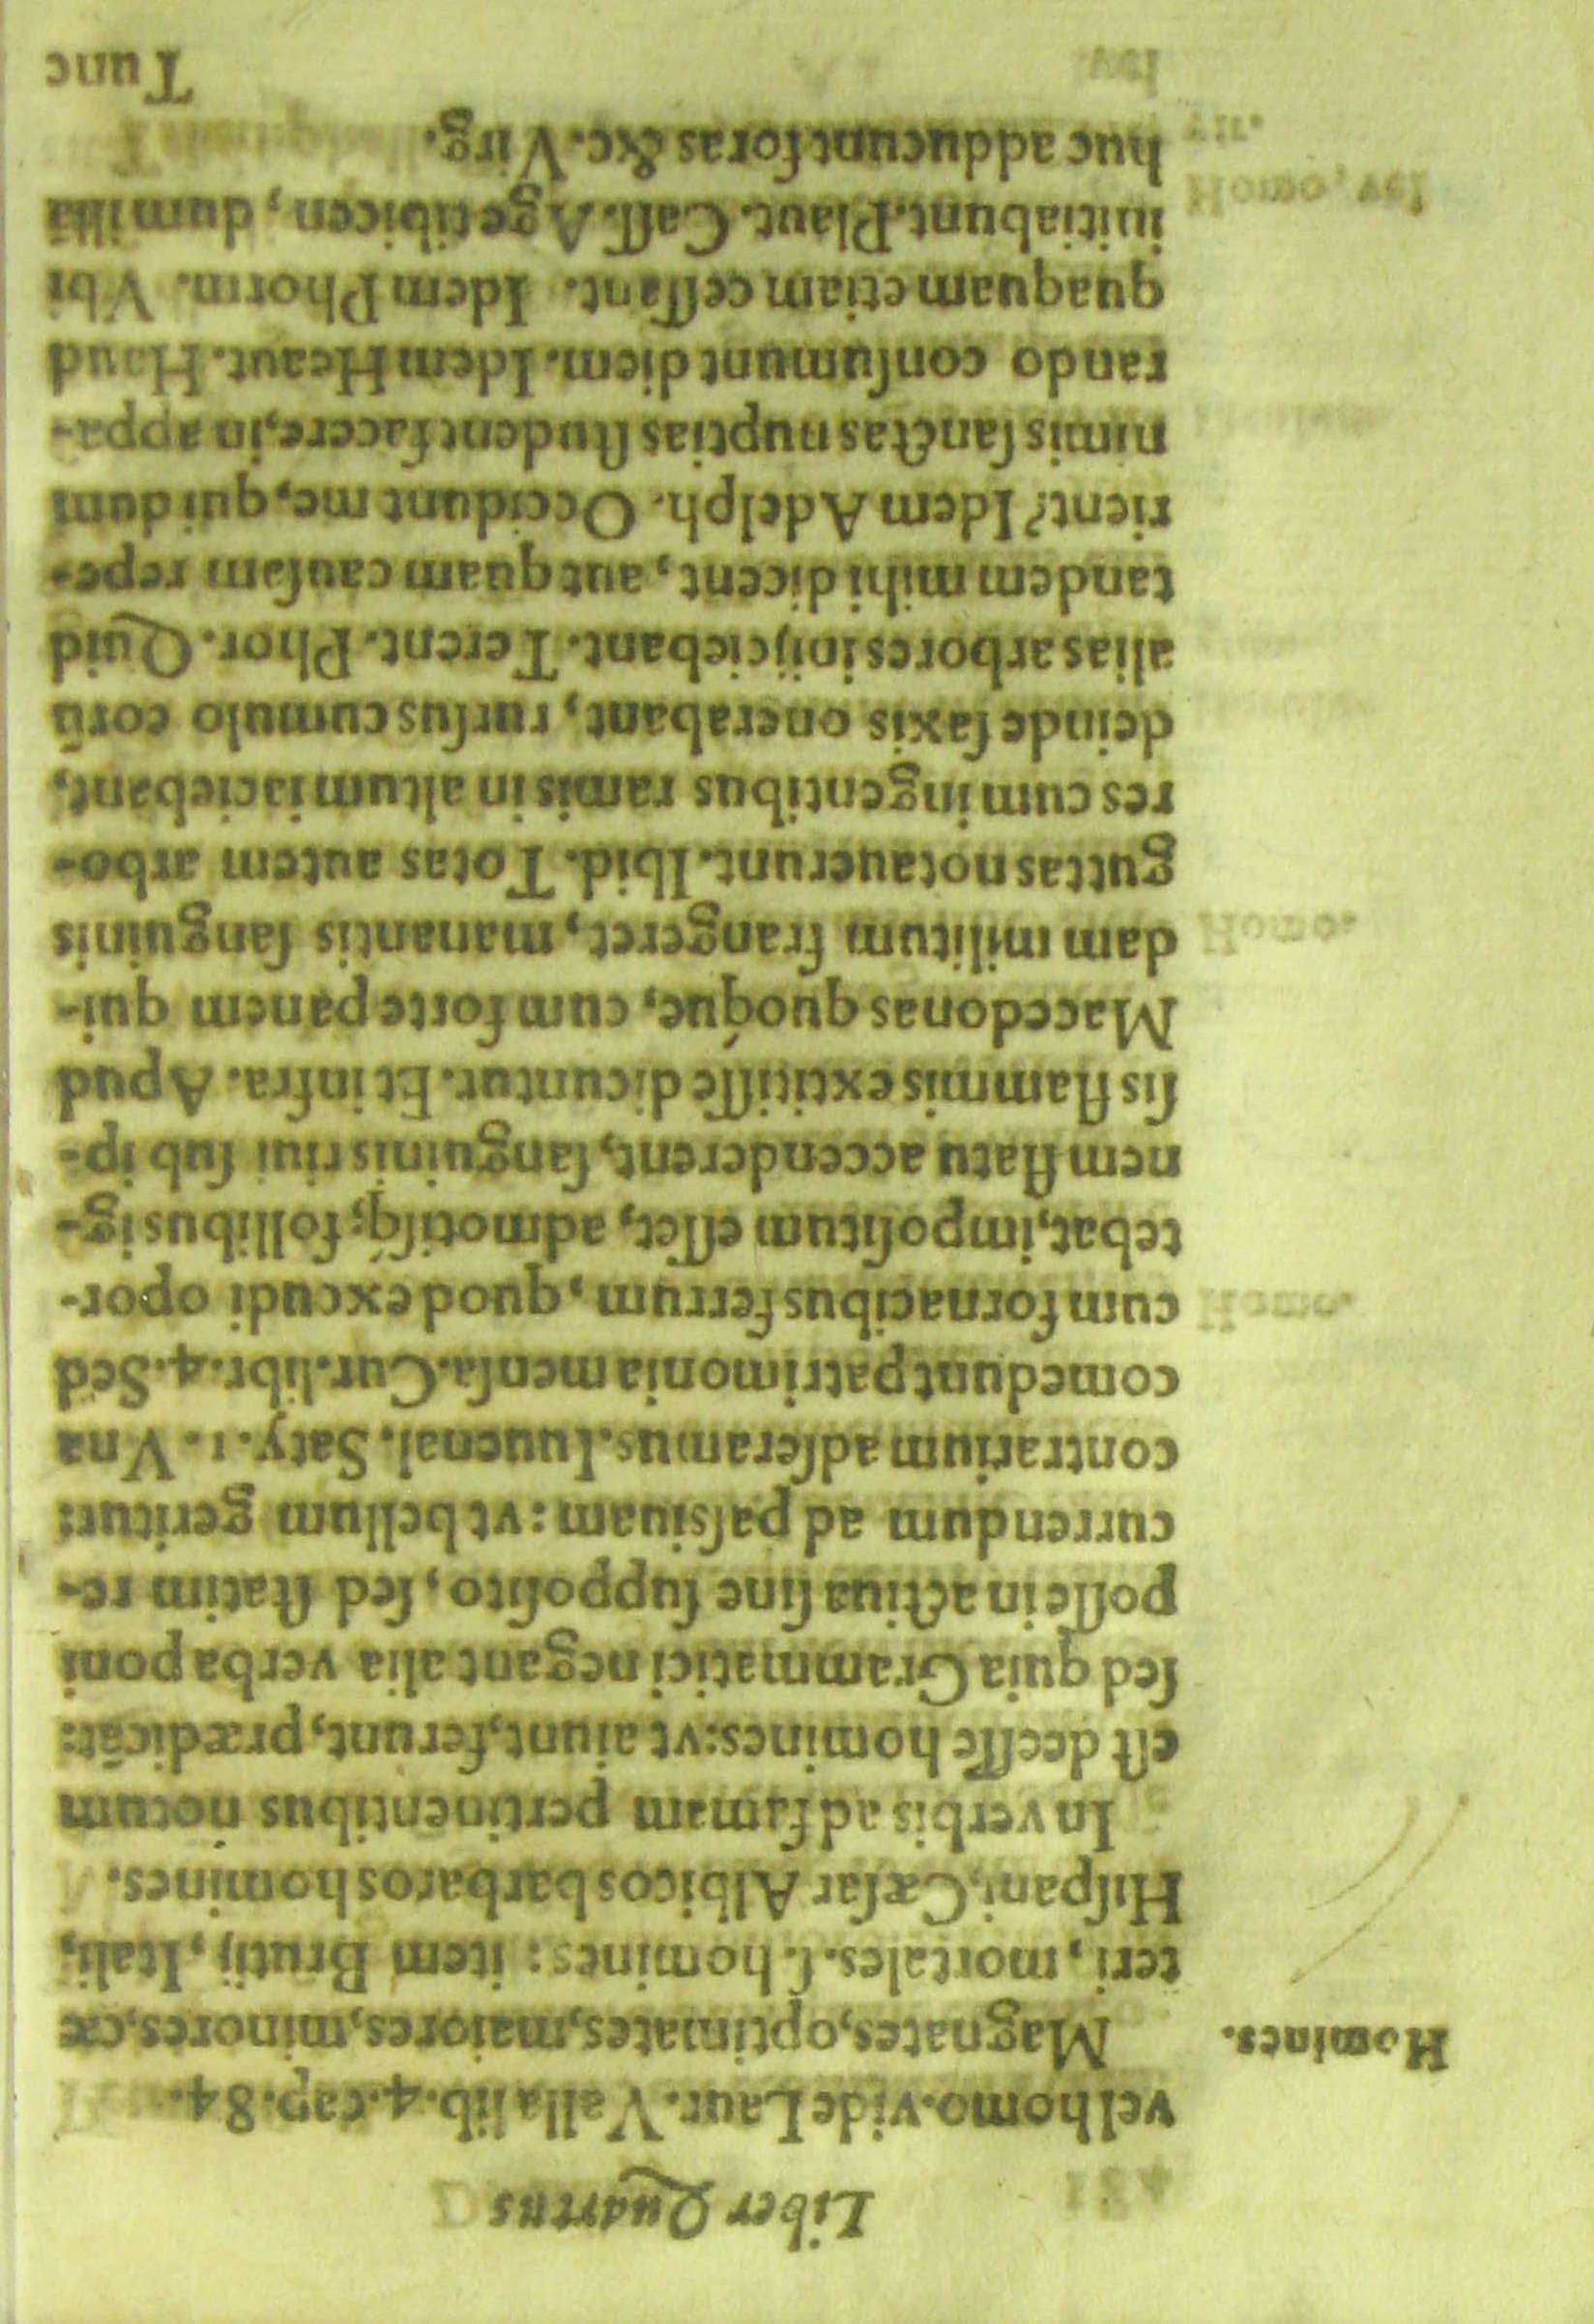 Liber Quartus
vel homo. vide Laur. Valla lib. 4. cap. 84.
Homines.
Magnates, optimates, maiores, minores, cæ
teri, mortales. ſ. homines: item Brutij, Itali,
Hiſpani, Cæſar Albicos barbaros homines.
In verbis ad famam pertinentibus notum
eſt deeſſe homines: vt aiunt, ferunt, prædicāt:
ſed quia Grammatici negant alia verba poni
poſſe in actiua ſine ſuppoſito, ſed ſtatim re-
currendum ad paſsiuam: vt bellum geritur:
contrarium adſeramus. Iuuenal. Saty. 1. Vna
comedunt patrimonia menſa. Cur. libr. 4. Sed
cum fornacibus ferrum, quod excudi opor-
tebat, impoſitum eſſet, admotiſq́; follibus ig-
nem flatu accenderent, ſanguinis riui ſub ip-
ſis flammis extitiſſe dicuntur. Et infra. Apud
Macedonas quoq́ue, cum forte panem qui-
dam militum frangeret, manantis ſanguinis
guttas notauerunt. Ibid. Totas autem arbo-
res cum ingentibus ramis in altum iaciebant,
deinde ſaxis onerabant, rurſus cumulo eorū
alias arbores inijciebant. Terent. Phor. Quid
tandem mihi dicent, aut quam cauſam repe-
rient? Idem Adelph. Occidunt me, qui dum
nimis ſanctas nuptias ſtudent facere, in appa-
rando conſumunt diem. Idem Heaut. Haud
quaquam etiam ceſſant. Idem Phorm. Vbi
initiabunt. Plaut. Caſſ. Age tibicen, dum illā
huc adducunt foras &c. Virg.
Tunc